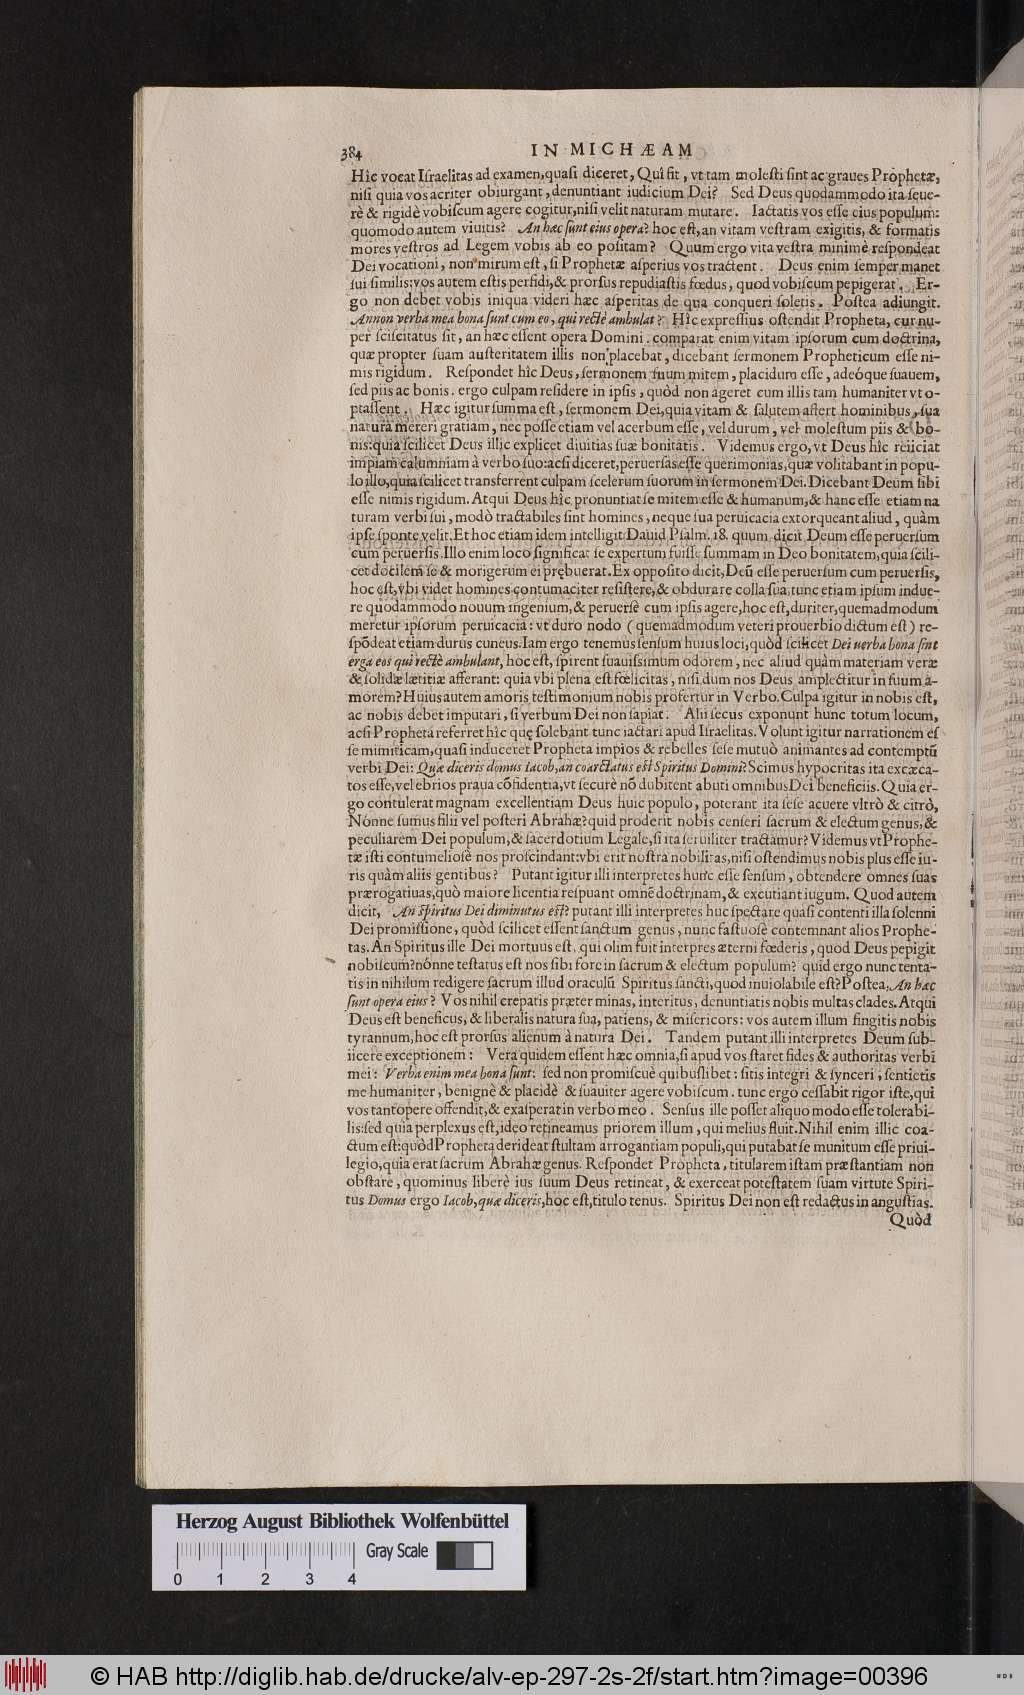 384
IN MICHÆAM
Hîc vocat Iſraelitas ad examen,quaſi diceret, Quî fit, vt tam moleſti ſint ac graues Prophetæ,
niſi quia vos acriter obiurgant, denuntiant iudicium Dei? Sed Deus quodammodo ita ſeue-
rè & rigidè vobiſcum agere cogitur,niſi velit naturam mutare. Iactatis vos eſſe eius populum:
quomodo autem viuitis? An hæc ſunt eius opera? hoc eſt,an vitam veſtram exigitis, & formatis
mores veſtros ad Legem vobis ab eo poſitam? Quum ergo vita veſtra minimè reſpondeat
Dei vocationi, non mirum eſt, ſi Prophetæ aſperius vos tractent. Deus enim ſemper manet
ſui ſimilis:vos autem eſtis perfidi,& prorſus repudiaſtis fœdus, quod vobiſcum pepigerat. Er-
go non debet vobis iniqua videri hæc aſperitas de qua conqueri ſoletis. Poſtea adiungit.
Annon verba mea bona ſunt cum eo, qui rectè ambulat? Hîc expreſſius oſtendit Propheta, cur nu-
per ſciſcitatus ſit, an hæc eſſent opera Domini. comparat enim vitam ipſorum cum doctrina,
quæ propter ſuam auſteritatem illis non placebat, dicebant ſermonem Propheticum eſſe ni-
mis rigidum. Reſpondet hîc Deus, ſermonem ſuum mitem, placidum eſſe, adeóque ſuauem,
ſed piis ac bonis. ergo culpam reſidere in ipſis, quòd non ageret cum illis tam humaniter vt o-
ptaſſent. Hæc igitur ſumma eſt, ſermonem Dei,quia vitam & ſalutem affert hominibus, ſua
natura mereri gratiam, nec poſſe etiam vel acerbum eſſe, vel durum, vel moleſtum piis & bo-
nis:quia ſcilicet Deus illic explicet diuitias ſuæ bonitatis. Videmus ergo,vt Deus hîc reiiciat
impiam calumniam à verbo ſuo:acſi diceret,peruerſas eſſe querimonias,quæ volitabant in popu-
lo illo,quia ſcilicet transferrent culpam ſcelerum ſuorum in ſermonem Dei. Dicebant Deum ſibi
eſſe nimis rigidum. Atqui Deus hîc pronuntiat ſe mitem eſſe & humanum,& hanc eſſe etiam na
turam verbi ſui, modò tractabiles ſint homines, neque ſua peruicacia extorqueant aliud, quàm
ipſe ſponte velit.Et hoc etiam idem intelligit Dauid Pſalm. 18. quum dicit Deum eſſe peruerſum
cum peruerſis.Illo enim loco ſignificat ſe expertum fuiſſe ſummam in Deo bonitatem,quia ſcili-
cet docilem ſe & morigerum ei prębuerat.Ex oppoſito dicit,Deũ eſſe peruerſum cum peruerſis,
hoc eſt,vbi videt homines contumaciter reſiſtere,& obdurare colla ſua:tunc etiam ipſum indue-
re quodammodo nouum ingenium,& peruerſè cum ipſis agere,hoc eſt,duriter,quemadmodum
meretur ipſorum peruicacia: vt duro nodo (quemadmodum veteri prouerbio dictum eſt) re-
ſpõdeat etiam durus cuneus.Iam ergo tenemus ſenſum huius loci,quòd ſcilicet Dei uerba bona ſint
erga eos qui rectè ambulant, hoc eſt, ſpirent ſuauiſſimum odorem, nec aliud quàm materiam veræ
& ſolidæ lætitiæ afferant: quia vbi plena eſt fœlicitas, niſi dum nos Deus amplectitur in ſuum a-
morem? Huius autem amoris teſtimonium nobis profertur in Verbo. Culpa igitur in nobis eſt,
ac nobis debet imputari, ſi verbum Dei non ſapiat. Alii ſecus exponunt hunc totum locum,
acſi Propheta referret hîc quę ſolebant tunc iactari apud Iſraelitas. Volunt igitur narrationem eſ
ſe mimiticam,quaſi induceret Propheta impios & rebelles ſeſe mutuò animantes ad contemptũ
verbi Dei: Quæ diceris domus Iacob,an coarctatus eſt Spiritus Domini? Scimus hypocritas ita excæca-
tos eſſe,vel ebrios praua cõfidentia,vt ſecurè nõ dubitent abuti omnibus Dei beneficiis. Quia er-
go contulerat magnam excellentiam Deus huic populo, poterant ita ſeſe acuere vltrò & citrò,
Nónne ſumus filii vel poſteri Abrahæ? quid proderit nobis cenſeri ſacrum & electum genus,&
peculiarem Dei populum,& ſacerdotium Legale,ſi ita ſeruiliter tractamur? Videmus vt Prophe-
tæ iſti contumelioſè nos proſcindant:vbi erit noſtra nobilitas,niſi oſtendimus nobis plus eſſe iu-
ris quàm aliis gentibus? Putant igitur illi interpretes hunc eſſe ſenſum, obtendere omnes ſuas
prærogatiuas,quò maiore licentia reſpuant omnẽ doctrinam,& excutiant iugum. Quod autem
dicit, An Spiritus Dei diminutus eſt? putant illi interpretes huc ſpectare quaſi contenti illa ſolenni
Dei promiſſione, quòd ſcilicet eſſent ſanctum genus, nunc faſtuoſè contemnant alios Prophe-
tas. An Spiritus ille Dei mortuus eſt, qui olim fuit interpres æterni fœderis, quod Deus pepigit
nobiſcum?nónne teſtatus eſt nos ſibi fore in ſacrum & electum populum? quid ergo nunc tenta-
tis in nihilum redigere ſacrum illud oraculũ Spiritus ſancti,quod inuiolabile eſt? Poſtea, An hæc
ſunt opera eius? Vos nihil crepatis præter minas, interitus, denuntiatis nobis multas clades. Atqui
Deus eſt beneficus, & liberalis natura ſua, patiens, & miſericors: vos autem illum fingitis nobis
tyrannum,hoc eſt prorſus alienum à natura Dei. Tandem putant illi interpretes Deum ſub-
iicere exceptionem: Vera quidem eſſent hæc omnia,ſi apud vos ſtaret fides & authoritas verbi
mei: Verba enim mea bona ſunt: ſed non promiſcuè quibuſlibet: ſitis integri & ſynceri, ſentietis
me humaniter, benignè & placidè & ſuauiter agere vobiſcum. tunc ergo ceſſabit rigor iſte,qui
vos tantopere offendit,& exaſperat in verbo meo. Senſus ille poſſet aliquo modo eſſe tolerabi-
lis:ſed quia perplexus eſt,ideo retineamus priorem illum, qui melius fluit. Nihil enim illic coa-
ctum eſt:quòd Propheta derideat ſtultam arrogantiam populi,qui putabat ſe munitum eſſe priui-
legio,quia erat ſacrum Abrahæ genus. Reſpondet Propheta, titularem iſtam præſtantiam non
obſtare, quominus liberè ius ſuum Deus retineat, & exerceat poteſtatem ſuam virtute Spiri-
tus Domus ergo Iacob,quæ diceris,hoc eſt,titulo tenus. Spiritus Dei non eſt redactus in anguſtias.
Quòd
Herzog August Bibliothek Wolfenbüttel
Gray Scale
0 1 2 3 4
© HAB http://diglib.hab.de/drucke/alv-ep-297-2s-2f/start.htm?image=00396